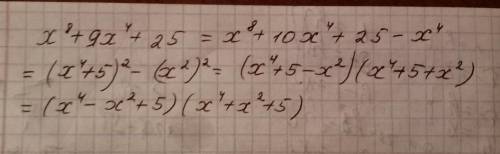 x⁸ + 9x⁴ + 25 = x⁸ + 10x⁴ + 25 - x⁴
= (x⁴ + 5)² - (x²)² = (x⁴ + 5 - x²)(x⁴ + 5 + x²)
= (x⁴ - x² + 5)(x⁴ + x² + 5)